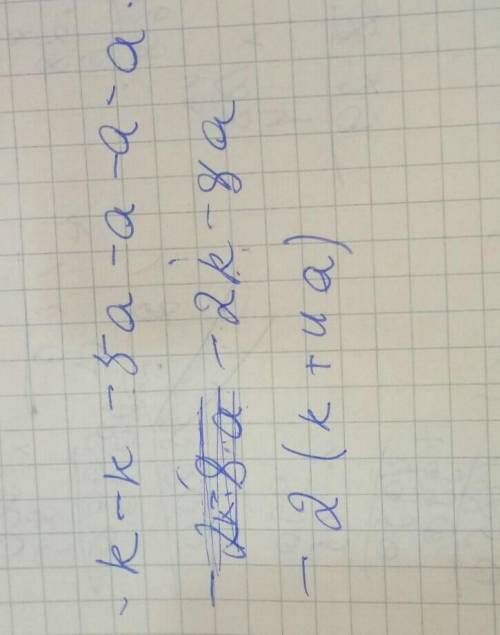 - k - k - 5a - a - a - a.
- 2k - 8a - 2k - 8a
- 2 (k + 4a)